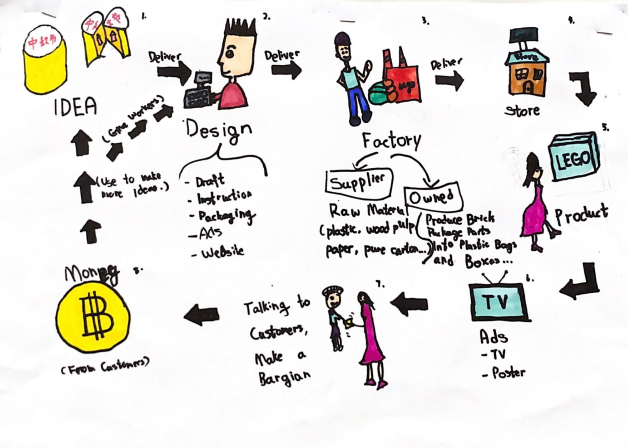 1.
IDEA
Deliver
2.
Design
- Draft
- Instruction
- Packaging
- Ads
- Website
Deliver
3.
Factory
Supplier
Raw Material
(plastic, wood pulp
paper, pure carbon...)
Owned
(Produce Brick
Package Parts
Into Plastic Bags
and Boxes...
Deliver
4.
Store
Store
5.
LEGO
Product
6.
TV
Ads
- TV
- Poster
7.
Talking to
Customers,
Make a
Bargian
8.
Money
(From Customers)
(Use to make
more Ideas.)